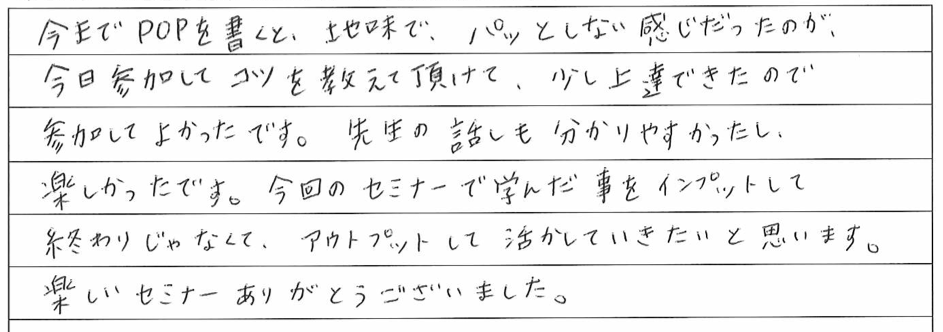 今までPOPを書くと、地味で、パッとしない感じだったのが、
今日参加してコツを教えて頂けて、少し上達できたので
参加してよかったです。先生の話しも分かりやすかったし、
楽しかったです。今回のセミナーで学んだ事をインプットして
終わりじゃなくて、アウトプットして活かしていきたいと思います。
楽しいセミナーありがとうございました。